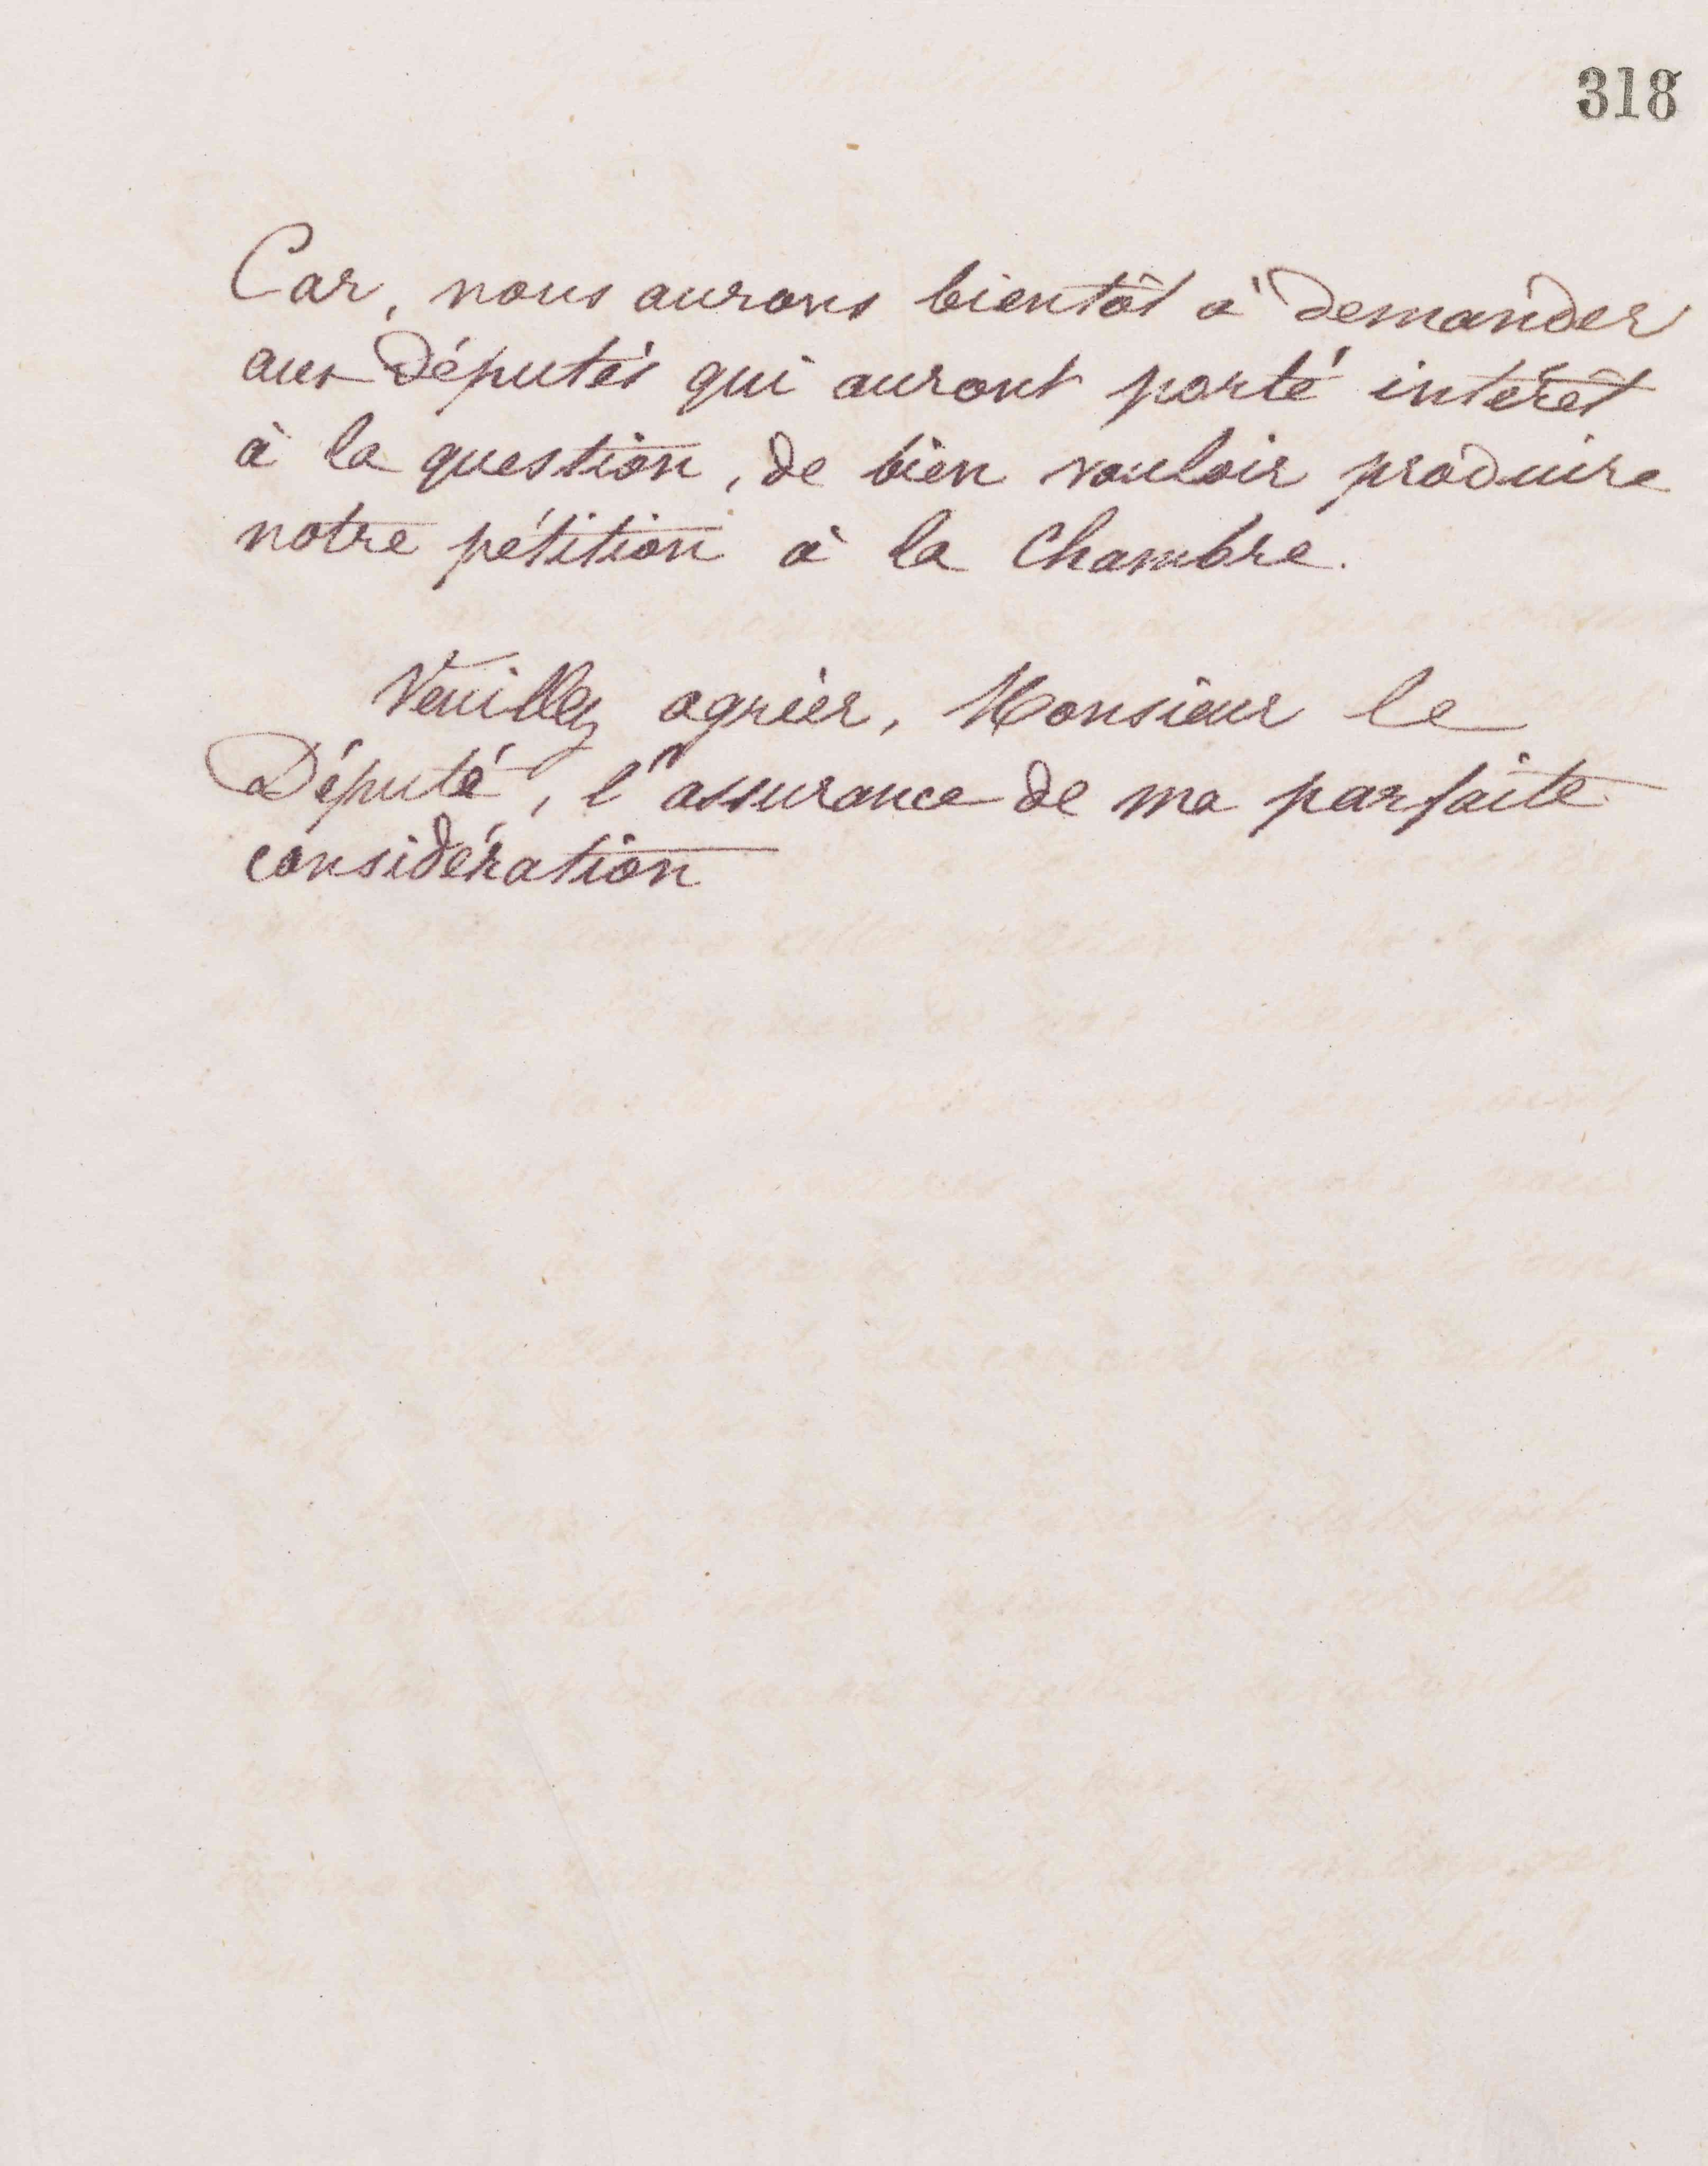 318
Car, nous aurons bientôt à demander
aux députés qui auront porté intérêt
à la question, de bien vouloir produire
notre pétition à la Chambre.
Veuillez agréer, Monsieur le
Député, l'assurance de ma parfaite
considération